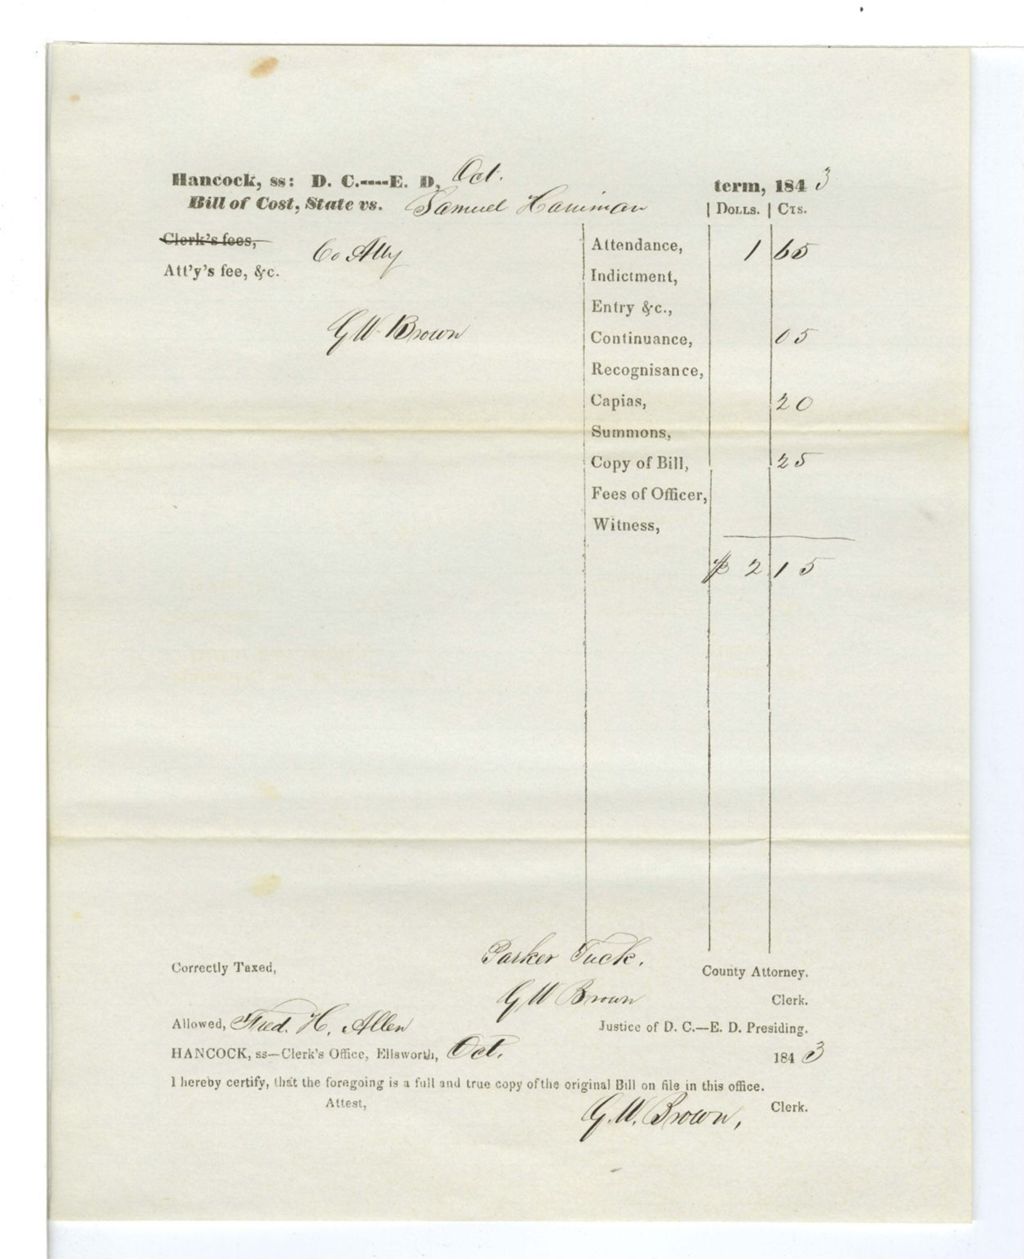 Hancock, ss: D. C.----E. D, Oct. term, 1843
Bill of Cost, State vs. Samuel Harriman | DOLLS. | CTS.
Clerk's fees, Co Atty Attendance, 1 65
Att'y's fee, &c. Indictment,
Entry &c.,
G W. Brown Continuance, 05
Recognisance,
Capias, 20
Summons,
Copy of Bill, 25
Fees of Officer,
Witness,
$ 2 15
Correctly Taxed, Parker Tuck. County Attorney.
G W Brown Clerk.
Allowed, Fred. H. Allen Justice of D. C.—E. D. Presiding.
HANCOCK, ss—Clerk's Office, Ellsworth, Oct. 1843
I hereby certify, that the foregoing is a full and true copy of the original Bill on file in this office.
Attest, G. W. Brown, Clerk.